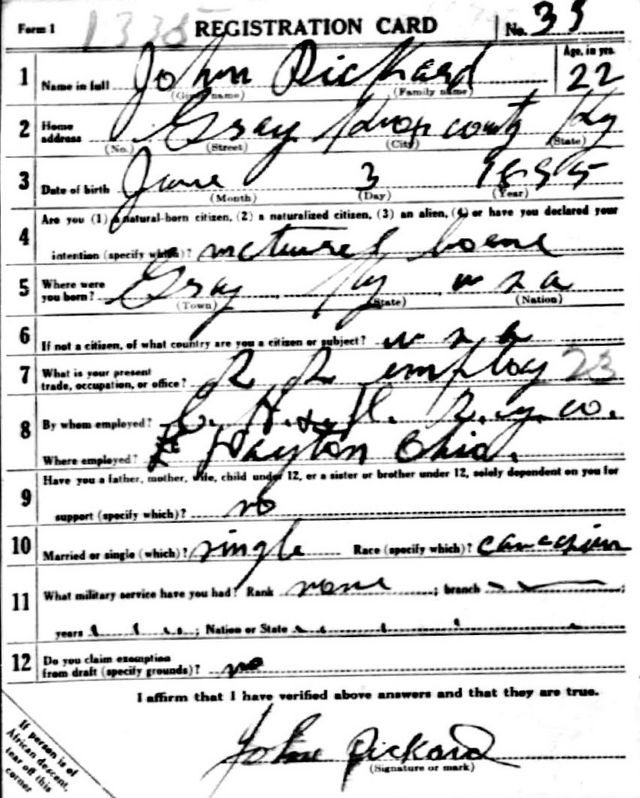 Form 1 1338 REGISTRATION CARD No. 33
1 Name in full John Pickard Age, in yrs. 22
(Given name) (Family name)
2 Home address Gray Knox county Ky
(No.) (Street) (City) (State)
3 Date of birth June 3 1895
(Month) (Day) (Year)
Are you (1) a natural-born citizen, (2) a naturalized citizen, (3) an alien, (4) or have you declared your
4 intention (specify which)? natural borne
5 Where were you born? Gray Ky u s a
(Town) (State) (Nation)
6 If not a citizen, of what country are you a citizen or subject? u s a
7 What is your present trade, occupation, or office? R R employ 23
8 By whom employed? C. H. & D. R.y. co.
Where employed? Dayton Ohio.
Have you a father, mother, wife, child under 12, or a sister or brother under 12, solely dependent on you for
9 support (specify which)? no
10 Married or single (which)? single Race (specify which)? caucasian
11 What military service have you had? Rank none ; branch ;
years ; Nation or State
12 Do you claim exemption from draft (specify grounds)? no
I affirm that I have verified above answers and that they are true.
John Pickard
(Signature or mark)
If person is of
African descent,
tear off this
corner